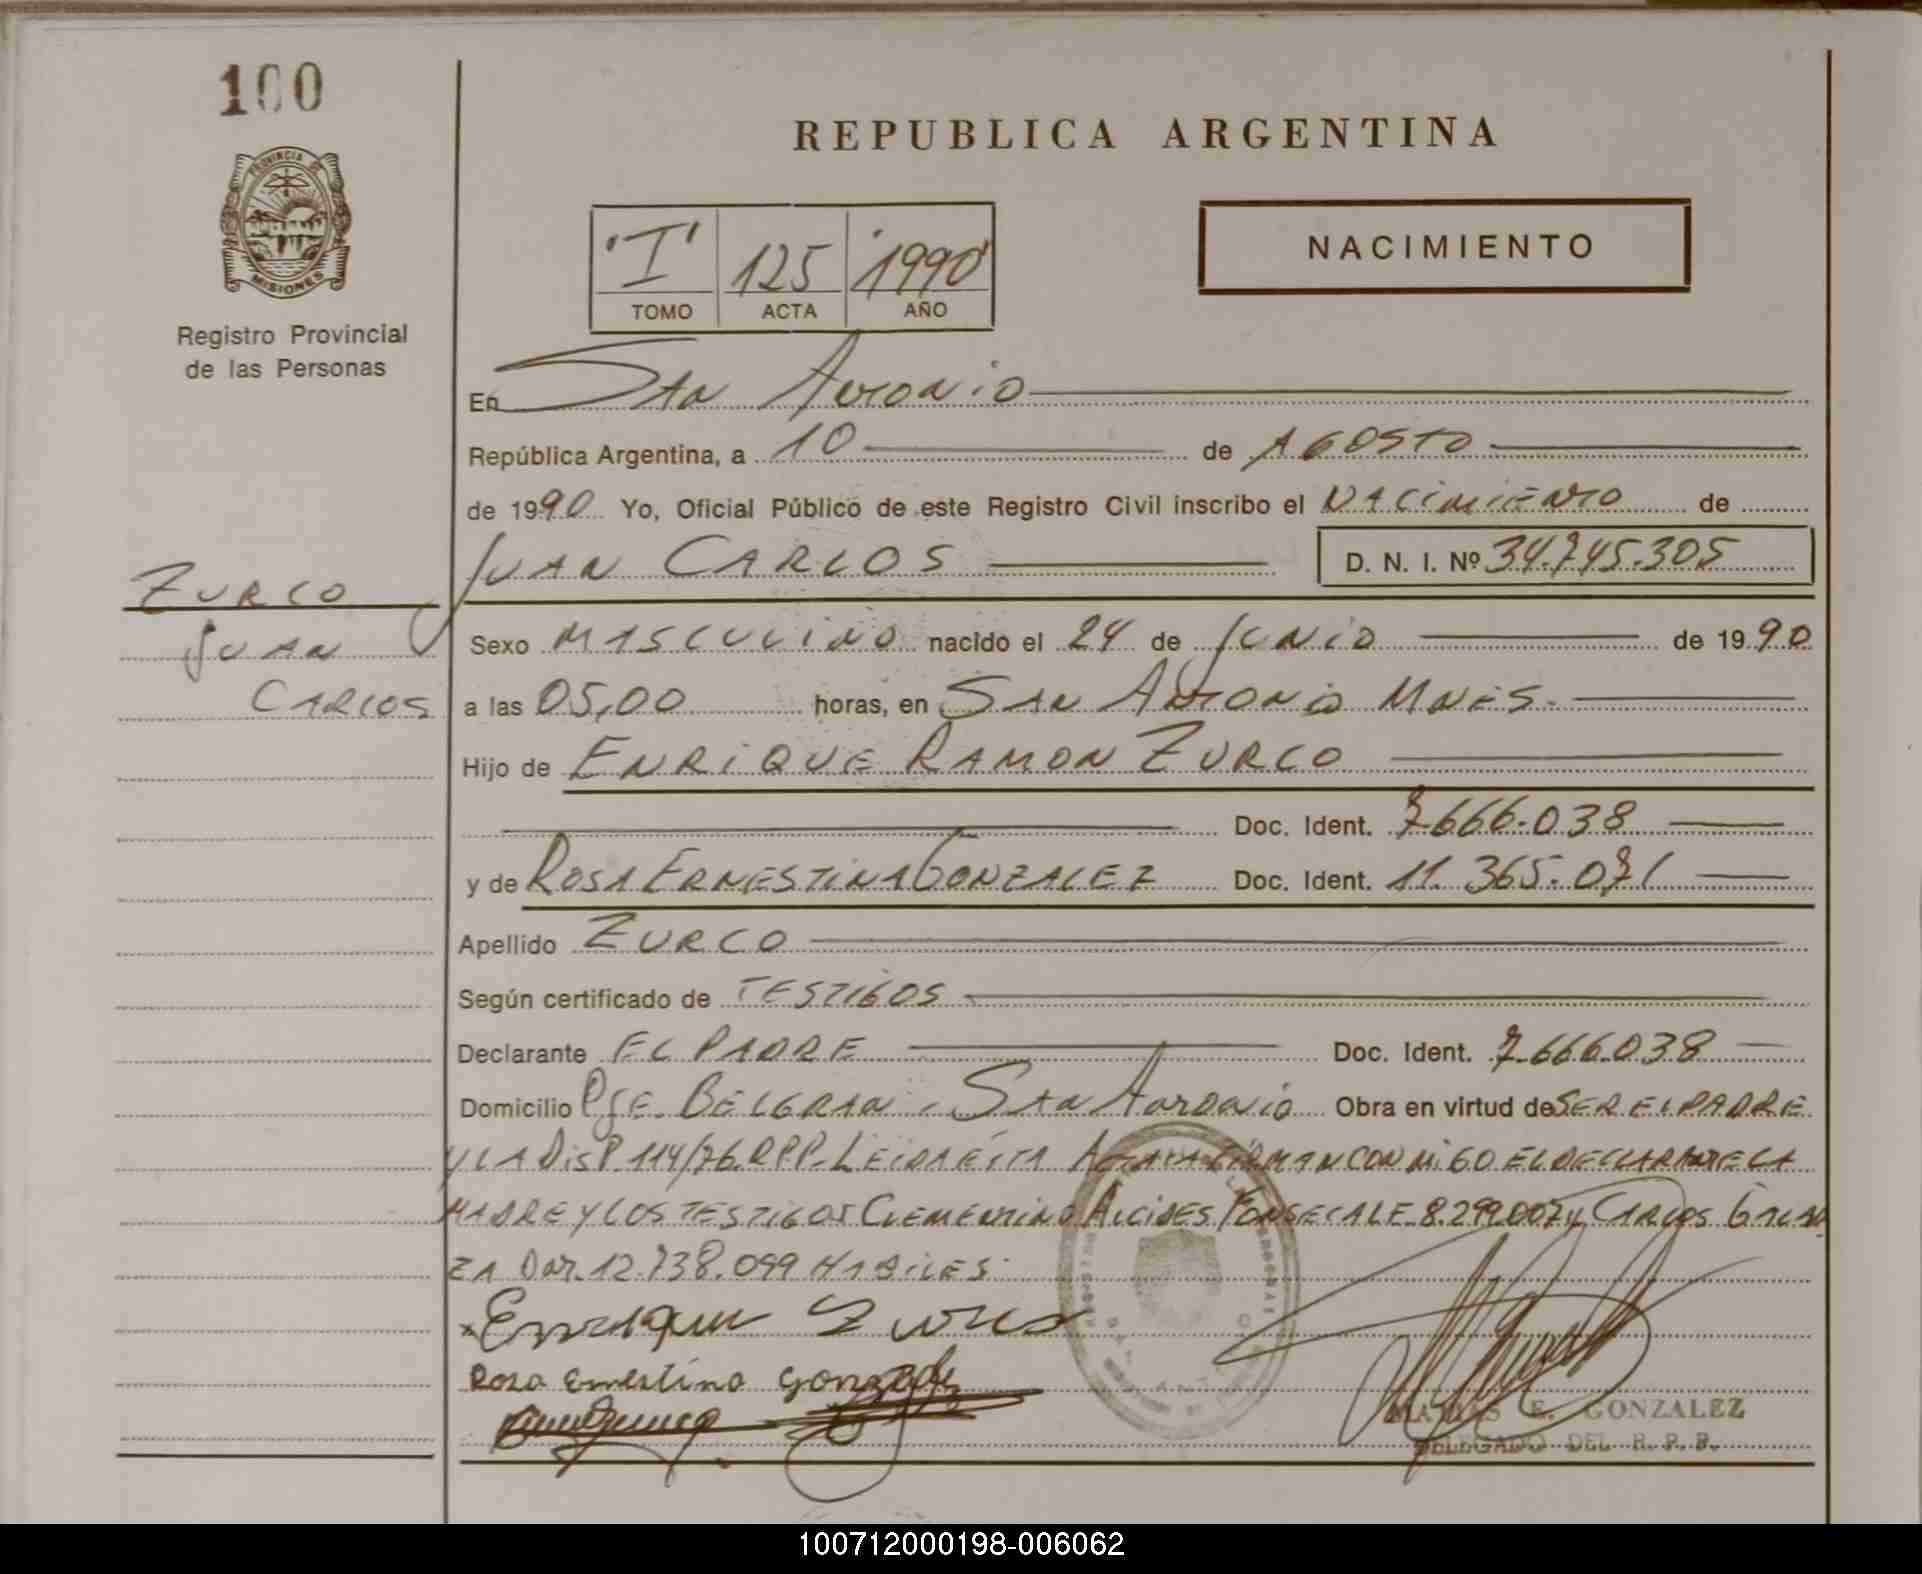 100
PROVINCIA DE
MISIONES
Registro Provincial
de las Personas
REPUBLICA ARGENTINA
"I" 125 "1990"
TOMO ACTA AÑO
NACIMIENTO
En San Antonio
República Argentina, a 10 de AGOSTO
de 1990 Yo, Oficial Público de este Registro Civil inscribo el NACIMIENTO de
JUAN CARLOS D. N. I. Nº 34.745.305
ZURCO
JUAN
CARLOS
Sexo MASCULINO nacido el 24 de JUNIO de 1990
a las 05,00 horas, en SAN ANTONIO MNES.
Hijo de ENRIQUE RAMON ZURCO
Doc. Ident. 7.666.038
y de ROSA ERNESTINA GONZALEZ Doc. Ident. 11.365.071
Apellido ZURCO
Según certificado de TESTIGOS
Declarante EL PADRE Doc. Ident. 7.666.038
Domicilio Pje. BELGRANO. SAN ANTONIO Obra en virtud de SER EL PADRE
Y LA DISP 114/76.RPP-LEIDA ESTA ACTA LA FIRMAN CONMIGO EL DECLARANTE LA
MADRE Y LOS TESTIGOS CLEMENTINO ALCIDES FONSECA LE 8.299.007 y CARLOS GALAR
ZA DNI. 12.738.099 HABILES.
Enrique Zurco
Rosa Ernestina Gonzalez
E. GONZALEZ
DELEGADO DEL R. P. P.
100712000198-006062